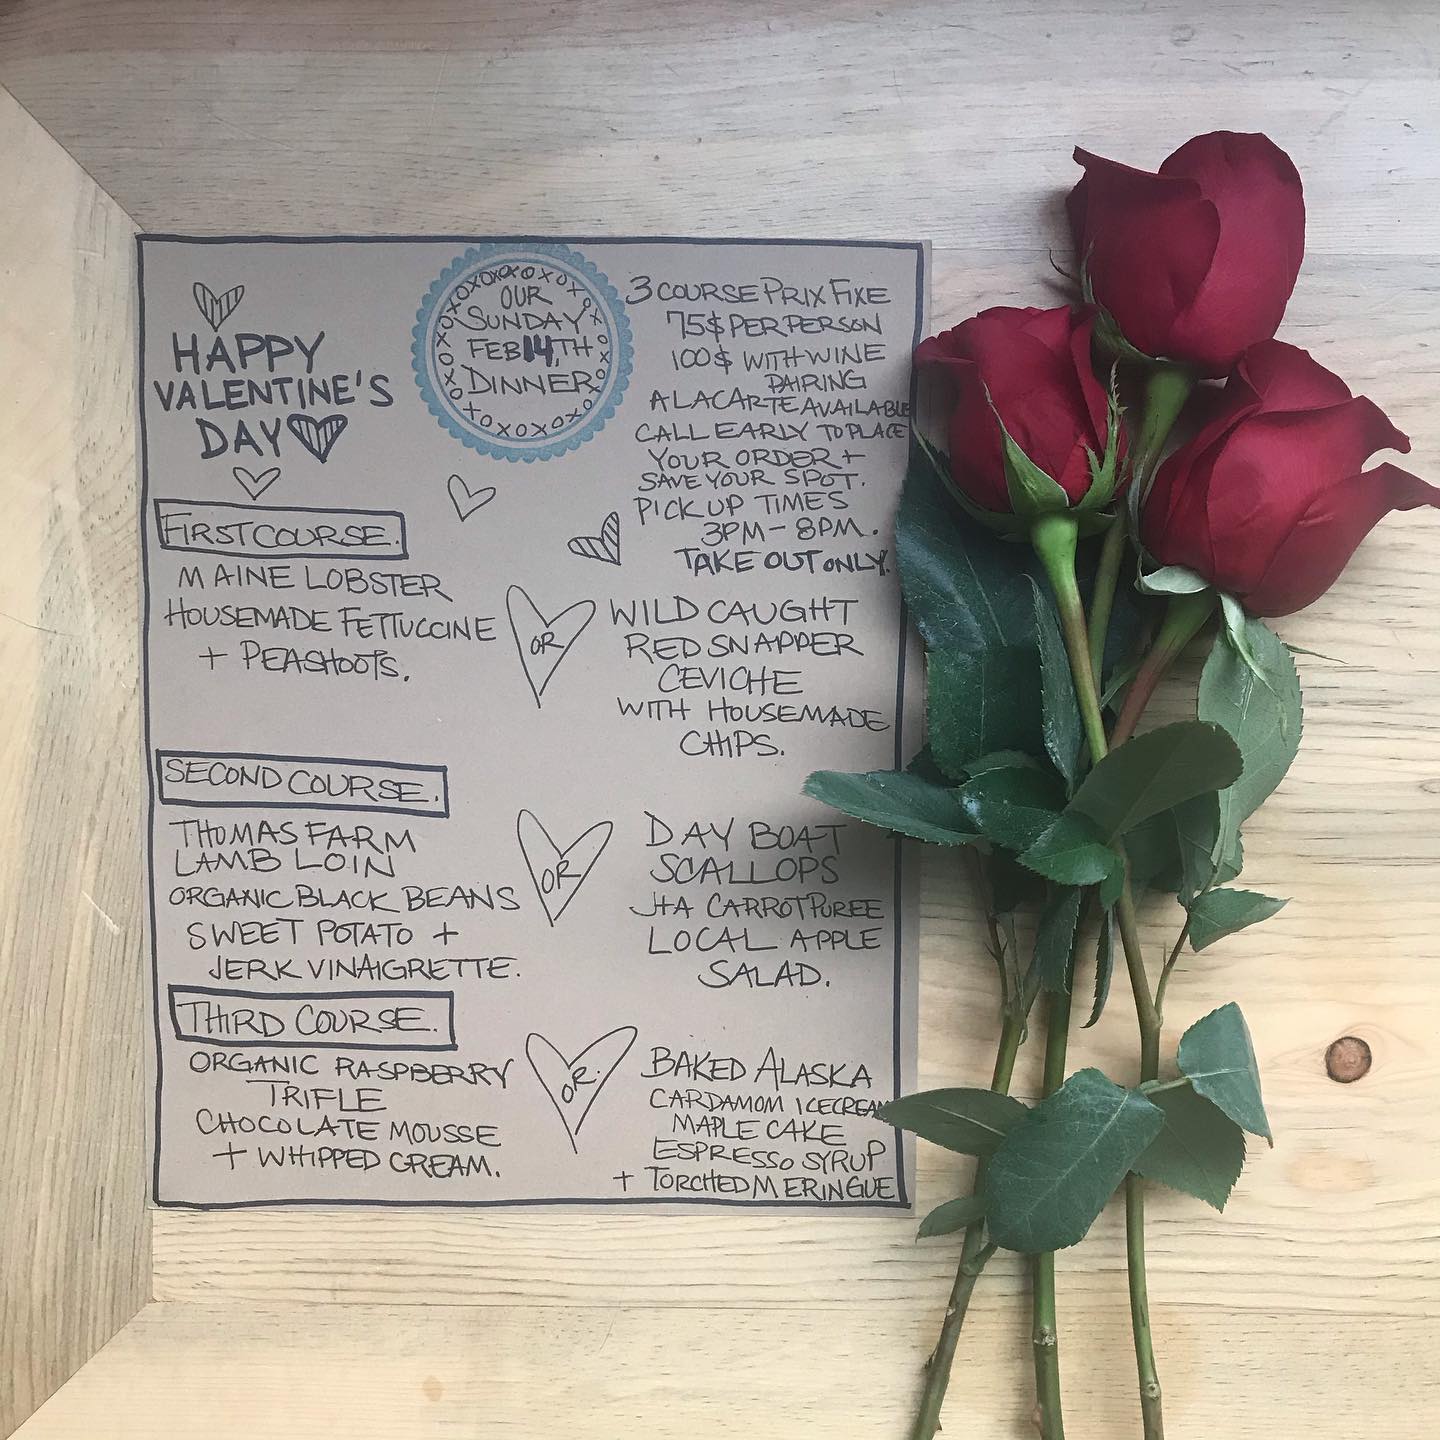 HAPPY
VALENTINE'S
DAY
OUR
SUNDAY
FEB 14,TH
DINNER
3 COURSE PRIX FIXE
75$ PER PERSON
100$ WITH WINE
PAIRING
A LA CARTE AVAILABLE
CALL EARLY TO PLACE
YOUR ORDER +
SAVE YOUR SPOT.
PICK UP TIMES
3PM - 8PM.
TAKE OUT ONLY.
FIRST COURSE.
MAINE LOBSTER
HOUSEMADE FETTUCCINE
+ PEASHOOTS.
OR
WILD CAUGHT
RED SNAPPER
CEVICHE
WITH HOUSEMADE
CHIPS.
SECOND COURSE.
THOMAS FARM
LAMB LOIN
ORGANIC BLACK BEANS
SWEET POTATO +
JERK VINAIGRETTE.
OR
DAY BOAT
SCALLOPS
CARROT PUREE
LOCAL APPLE
SALAD.
THIRD COURSE.
ORGANIC RASPBERRY
TRIFLE
CHOCOLATE MOUSSE
+ WHIPPED CREAM.
OR.
BAKED ALASKA
CARDAMOM ICECREAM
MAPLE CAKE
ESPRESSO SYRUP
+ TORCHED MERINGUE